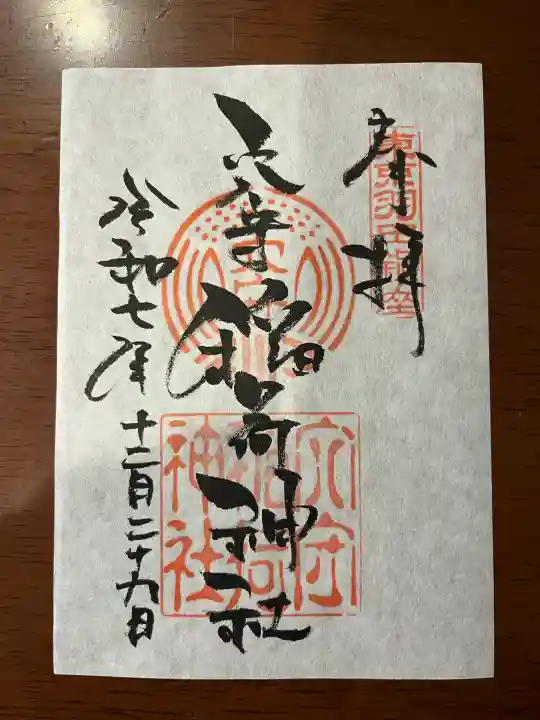 奉拝
東京羽田鎮座
穴守稲荷神社
穴守稲荷神社
令和七年十二月二十九日